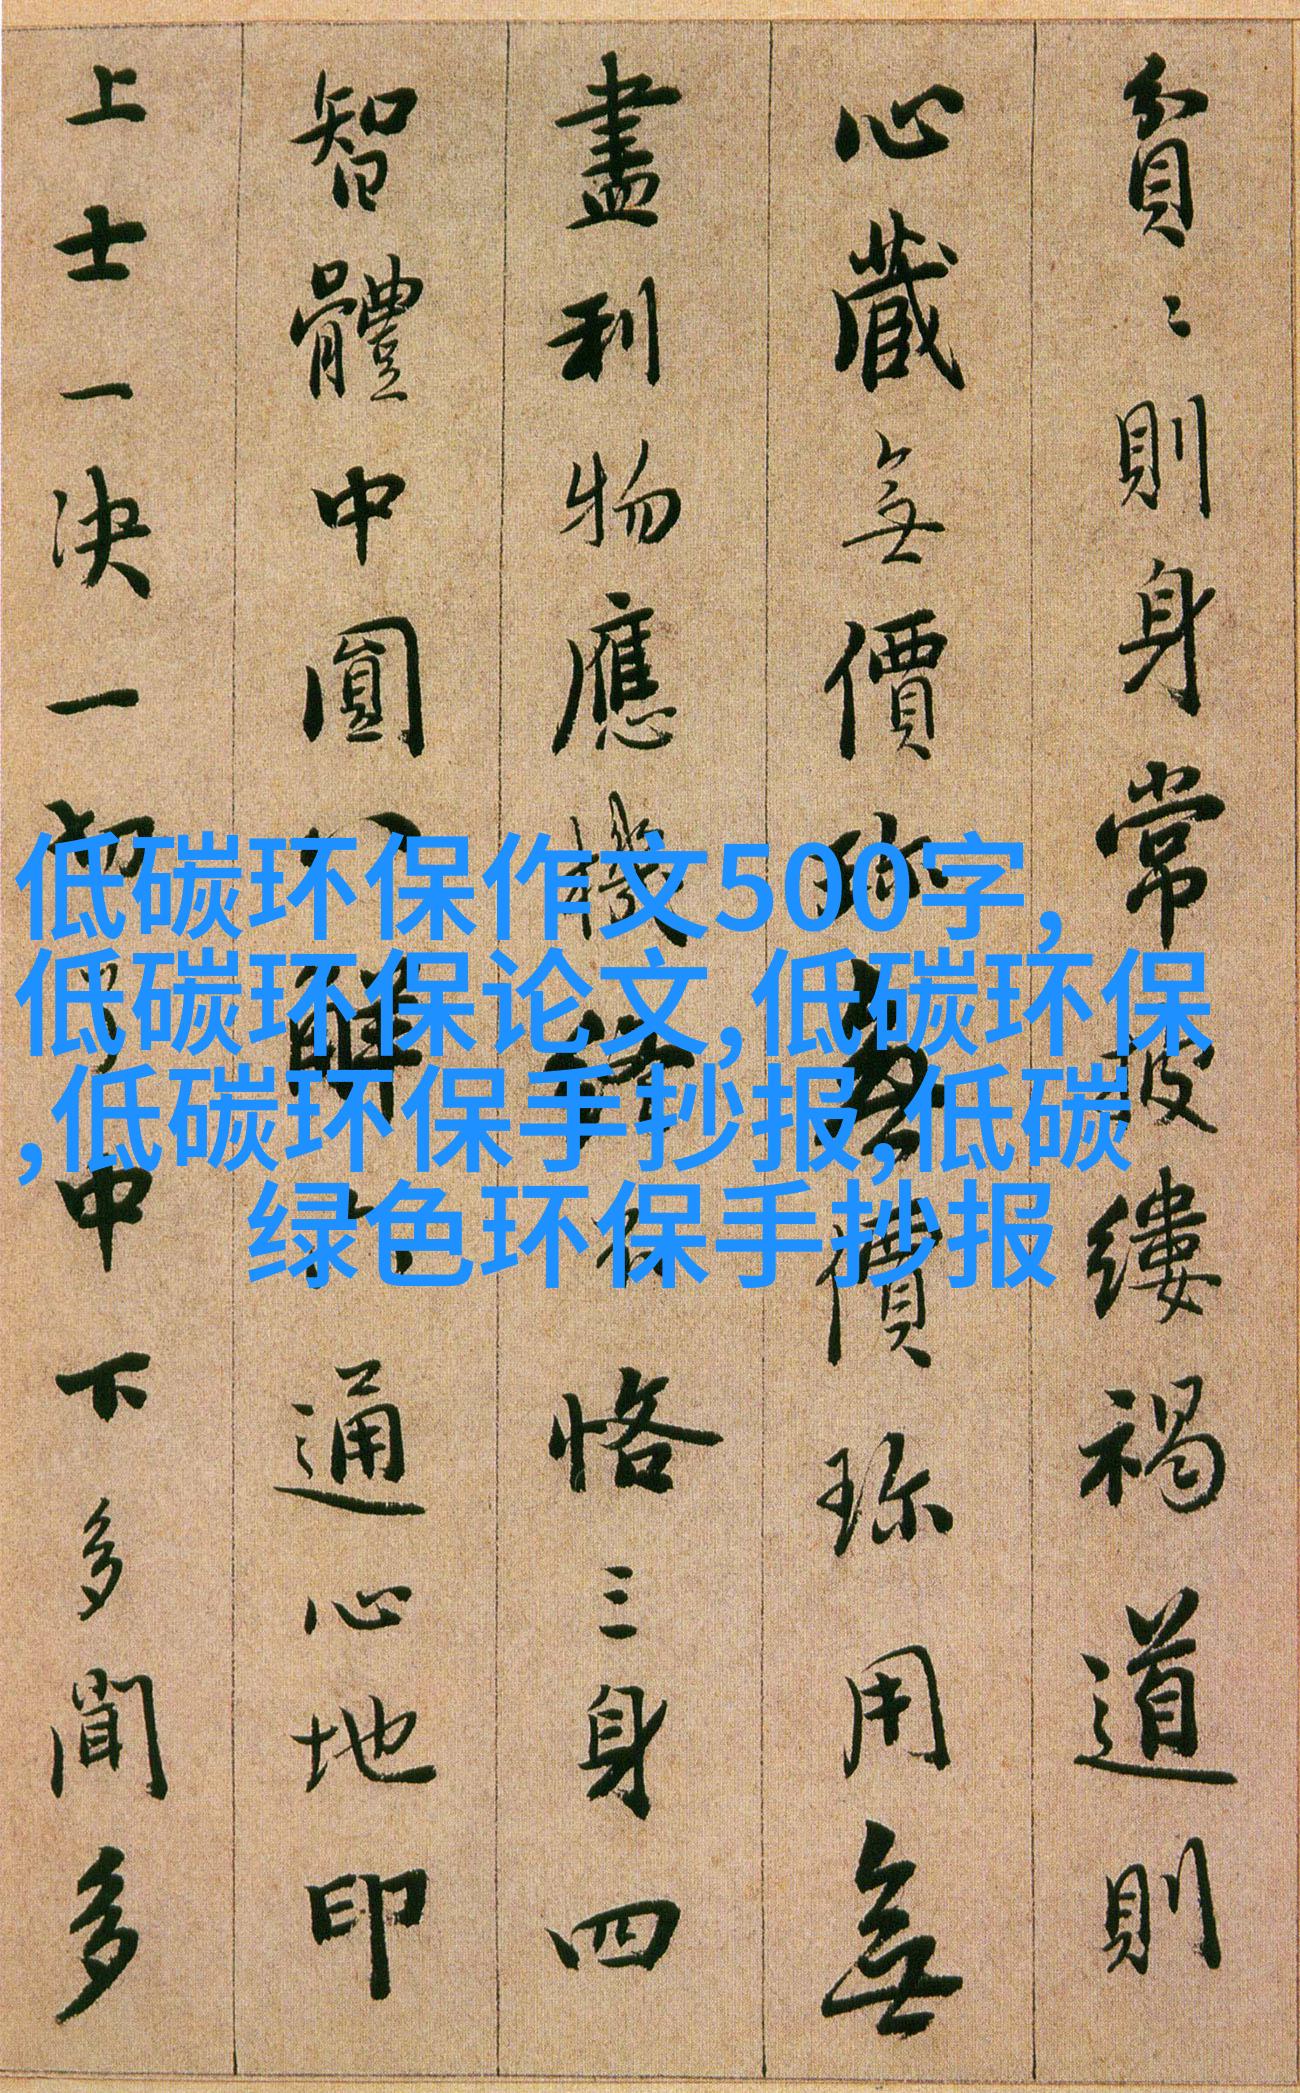 貧〻〻則身常披縷褐道則
心藏無價珎無價珎用無
盡利物應機終不恪三身四
智體中圓八解六通心地印
上士一决一切了中下多聞多
低碳环保作文500字,
低碳环保论文,低碳环保
,低碳环保手抄报,低碳
绿色环保手抄报